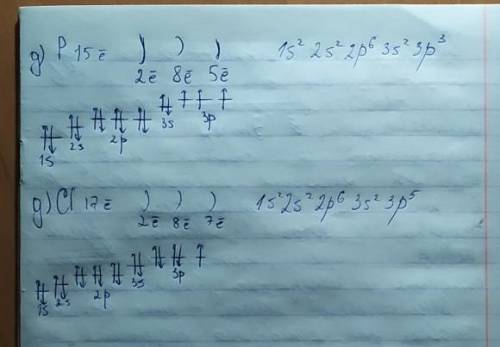 д) P 15ē ) ) ) 1s² 2s² 2p⁶ 3s² 3p³
2ē 8ē 5ē
⇅ ⇅ ⇅ ⇅ ⇅ ⇅ ↑ ↑ ↑
1s 2s 2p 3s 3p
д) Cl 17ē ) ) ) 1s² 2s² 2p⁶ 3s² 3p⁵
2ē 8ē 7ē
⇅ ⇅ ⇅ ⇅ ⇅ ⇅ ⇅ ⇅ ↑
1s 2s 2p 3s 3p